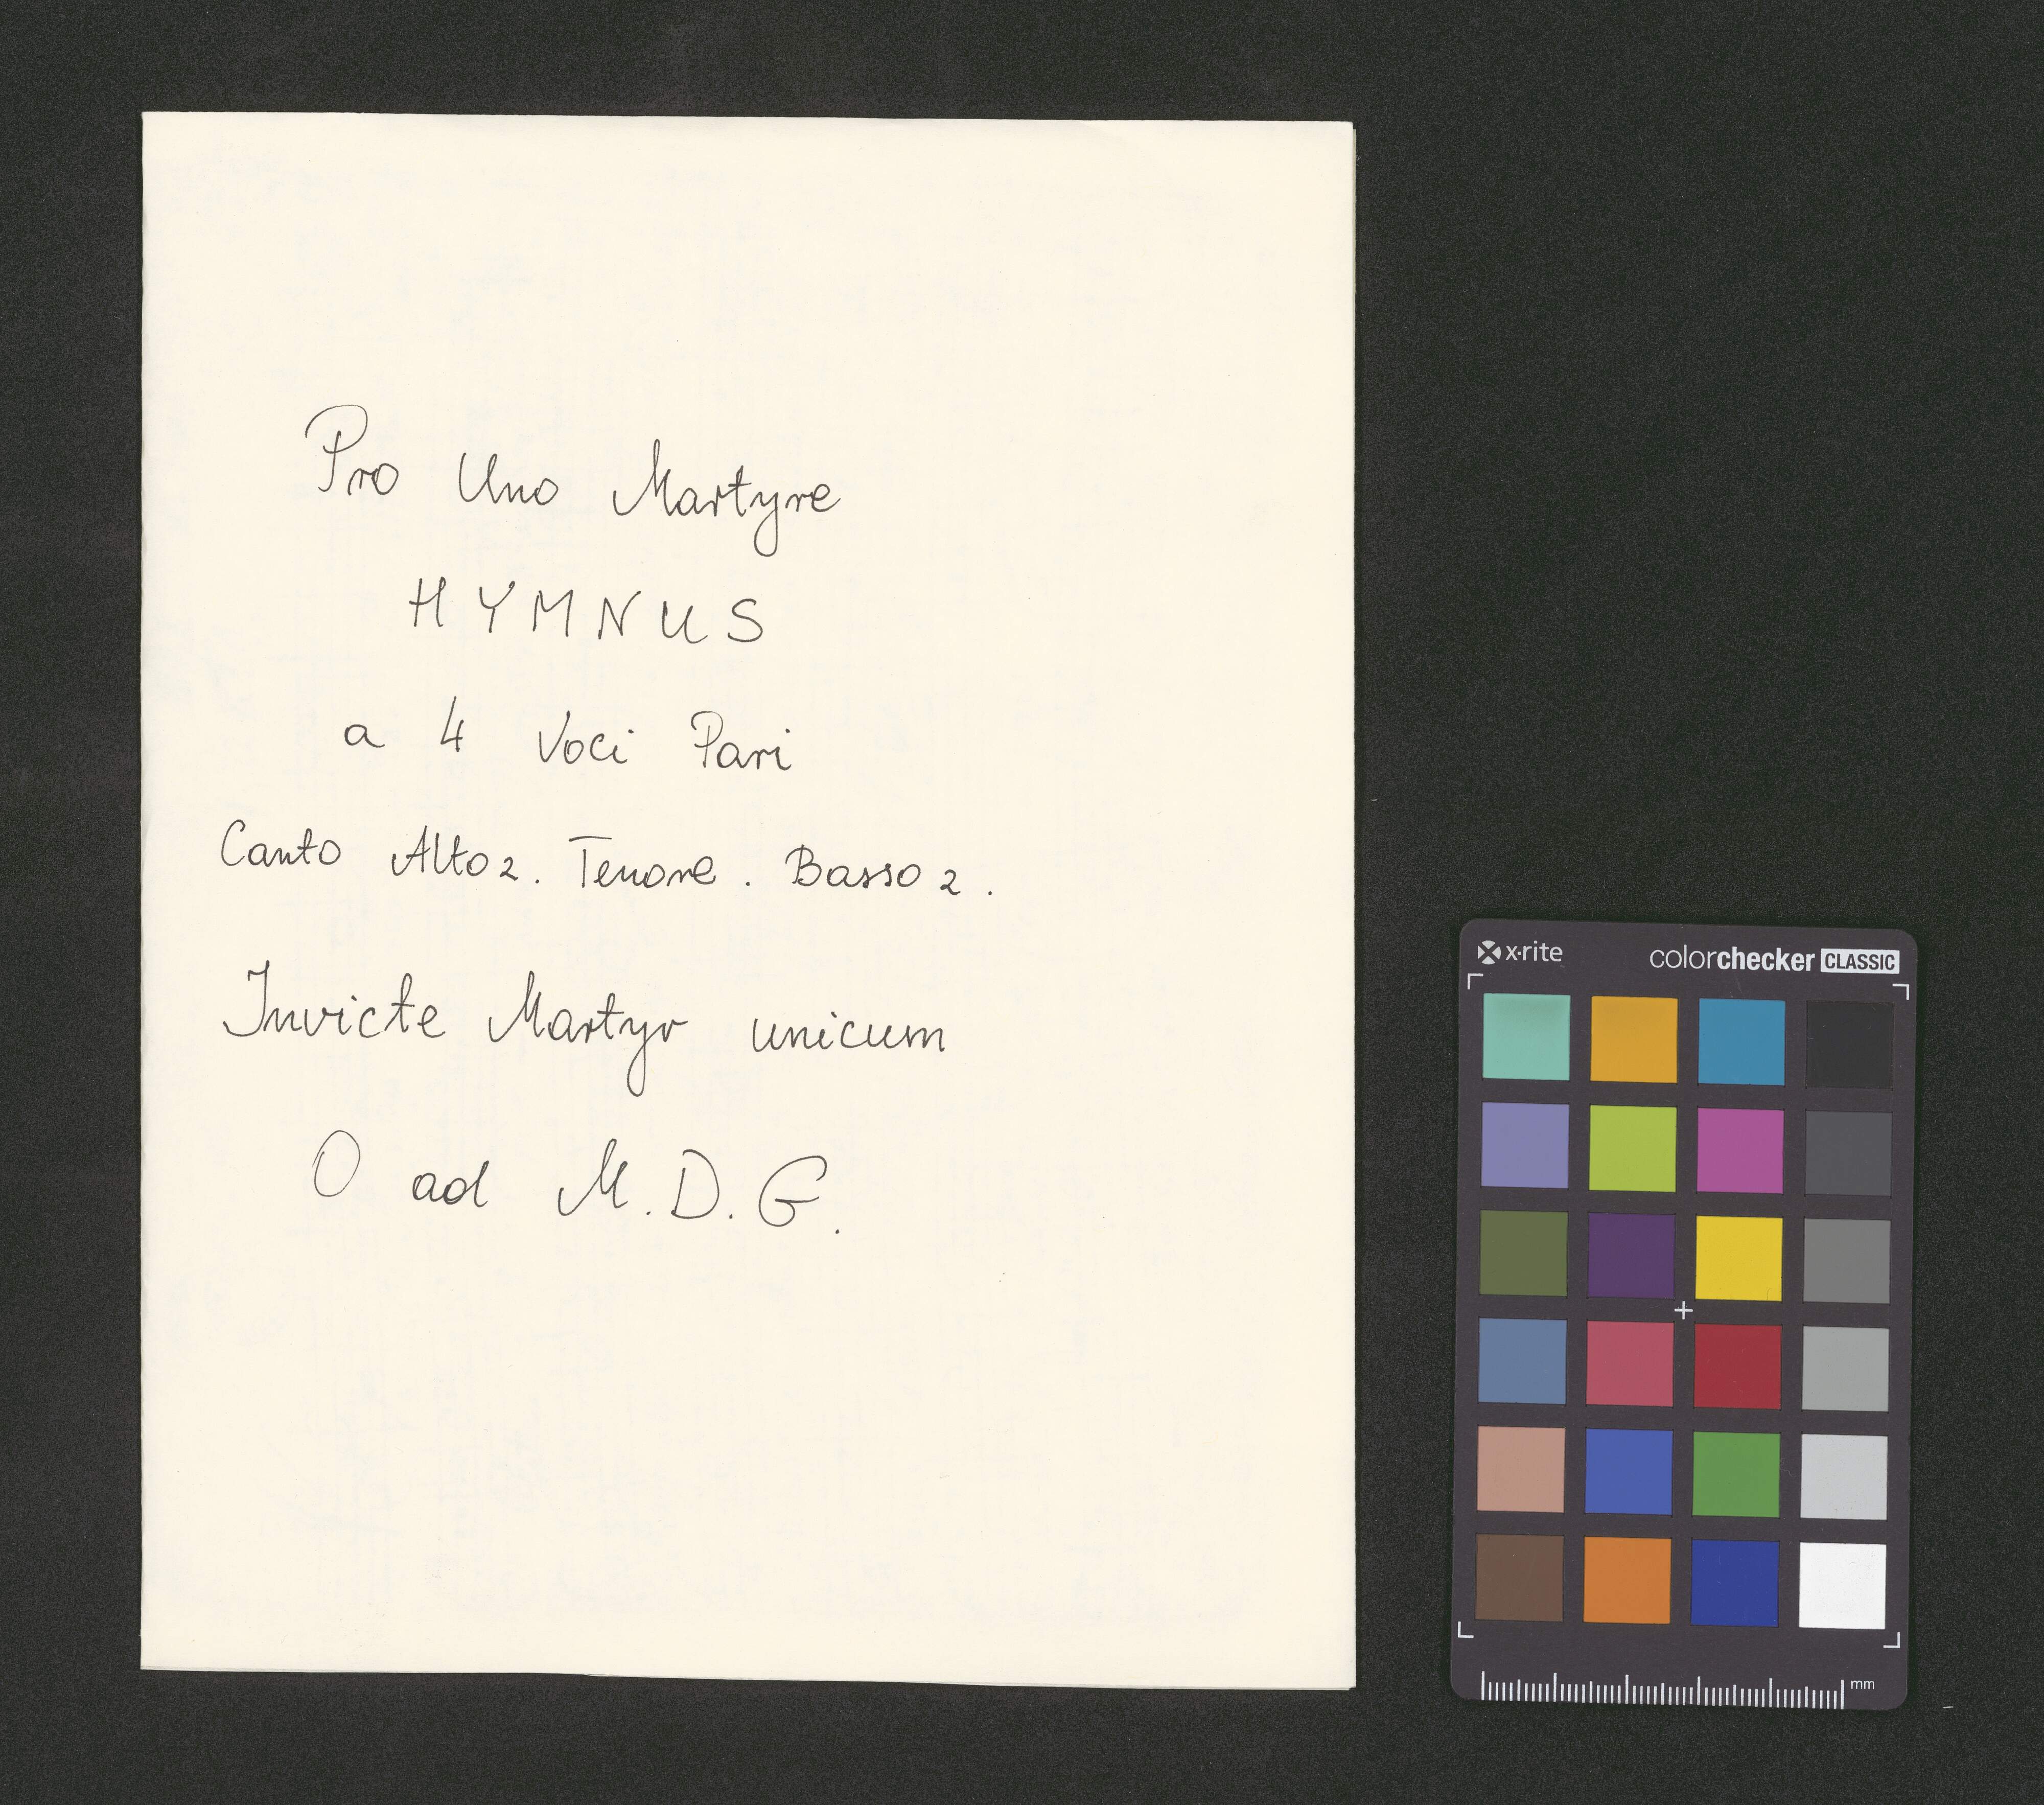 Pro Uno Martyre
HYMNUS
a 4 Voci Pari
Canto Alto 2. Tenore. Basso 2.
Invicte Martyr unicum
O ad M.D.G.
x·rite colorchecker CLASSIC
mm